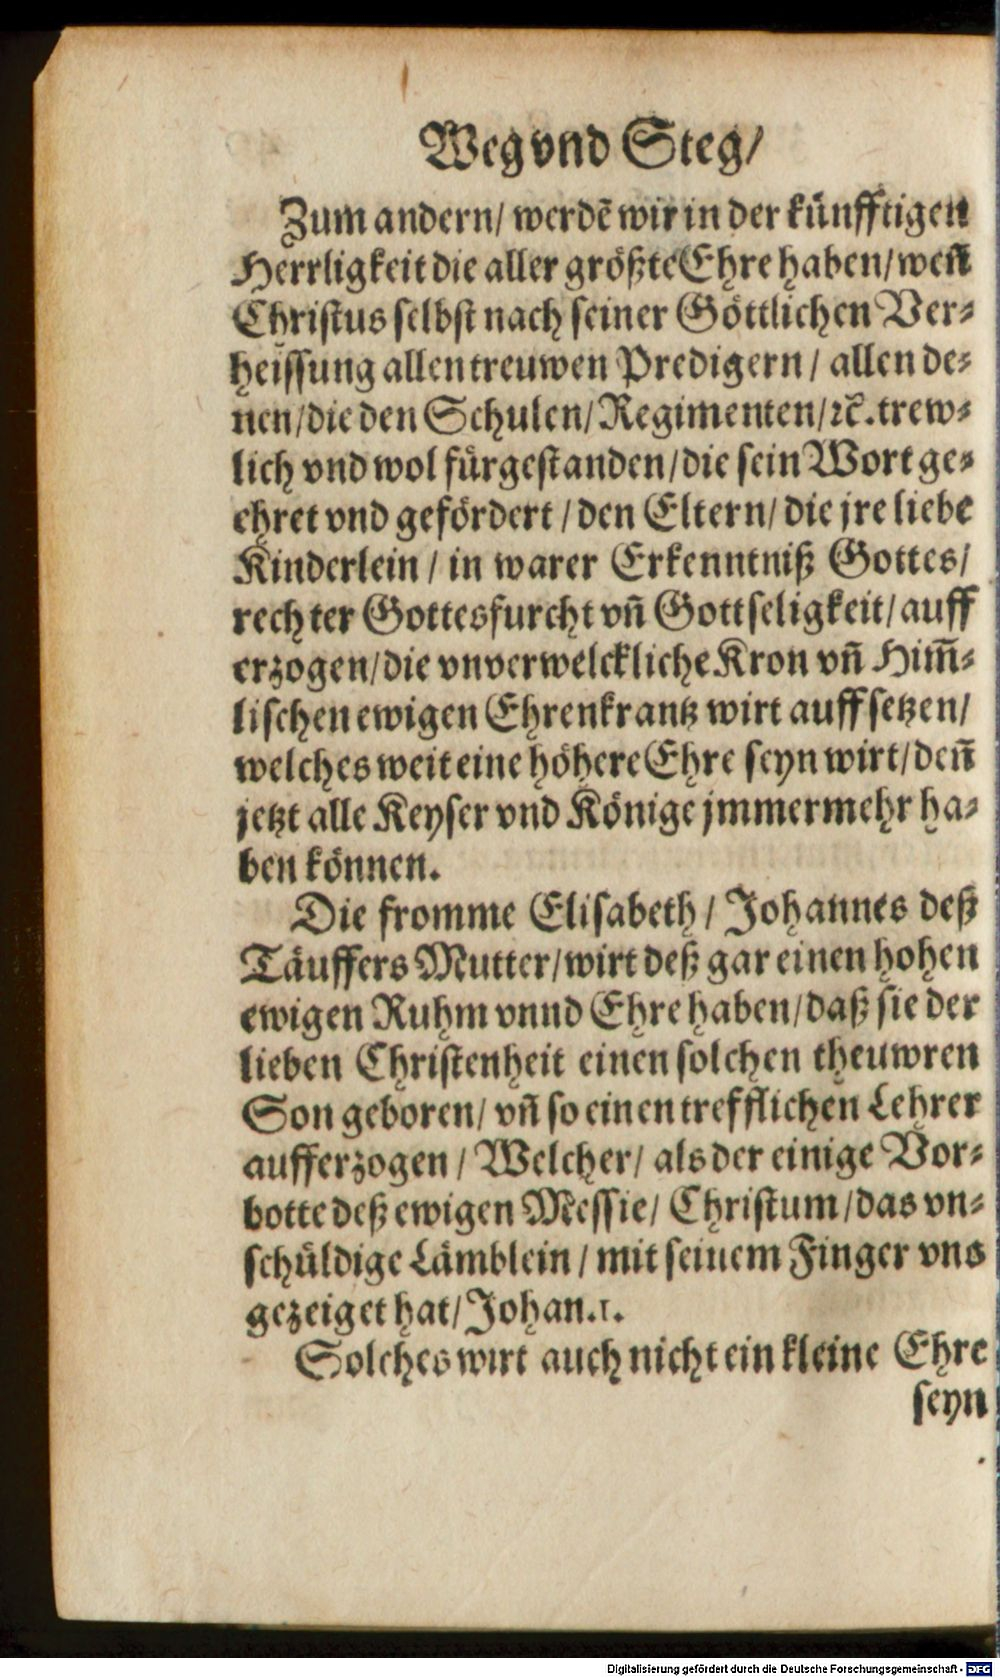 Weg vnd Steg/
Zum andern/ werdẽ wir in der künfftigen
Herrligkeit die aller größte Ehre haben/ weñ
Christus selbst nach seiner Göttlichen Ver-
heissung allen treuwen Predigern / allen de-
nen/ die den Schulen/ Regimenten/ ꝛc̃. trew-
lich vnd wol fürgestanden/ die sein Wort ge-
ehret vnd gefördert / den Eltern/ die jre liebe
Kinderlein / in warer Erkenntniß Gottes/
rechter Gottesfurcht vñ Gottseligkeit/ auff
erzogen/ die vnverwelckliche Kron vñ Him̃-
lischen ewigen Ehrenkrantz wirt auffsetzen/
welches weit eine höhere Ehre seyn wirt/ deñ
jetzt alle Keyser vnd Könige jmmermehr ha-
ben können.
Die fromme Elisabeth / Johannes deß
Täuffers Mutter/ wirt deß gar einen hohen
ewigen Ruhm vnnd Ehre haben/ daß sie der
lieben Christenheit einen solchen theuwren
Son geboren/ vñ so einen trefflichen Lehrer
aufferzogen / Welcher/ als der einige Vor-
botte deß ewigen Messie/ Christum / das vn-
schüldige Lämblein / mit seinem Finger vns
gezeiget hat/ Johan. 1.
Solches wirt auch nicht ein kleine Ehre
seyn
Digitalisierung gefördert durch die Deutsche Forschungsgemeinschaft - DFG